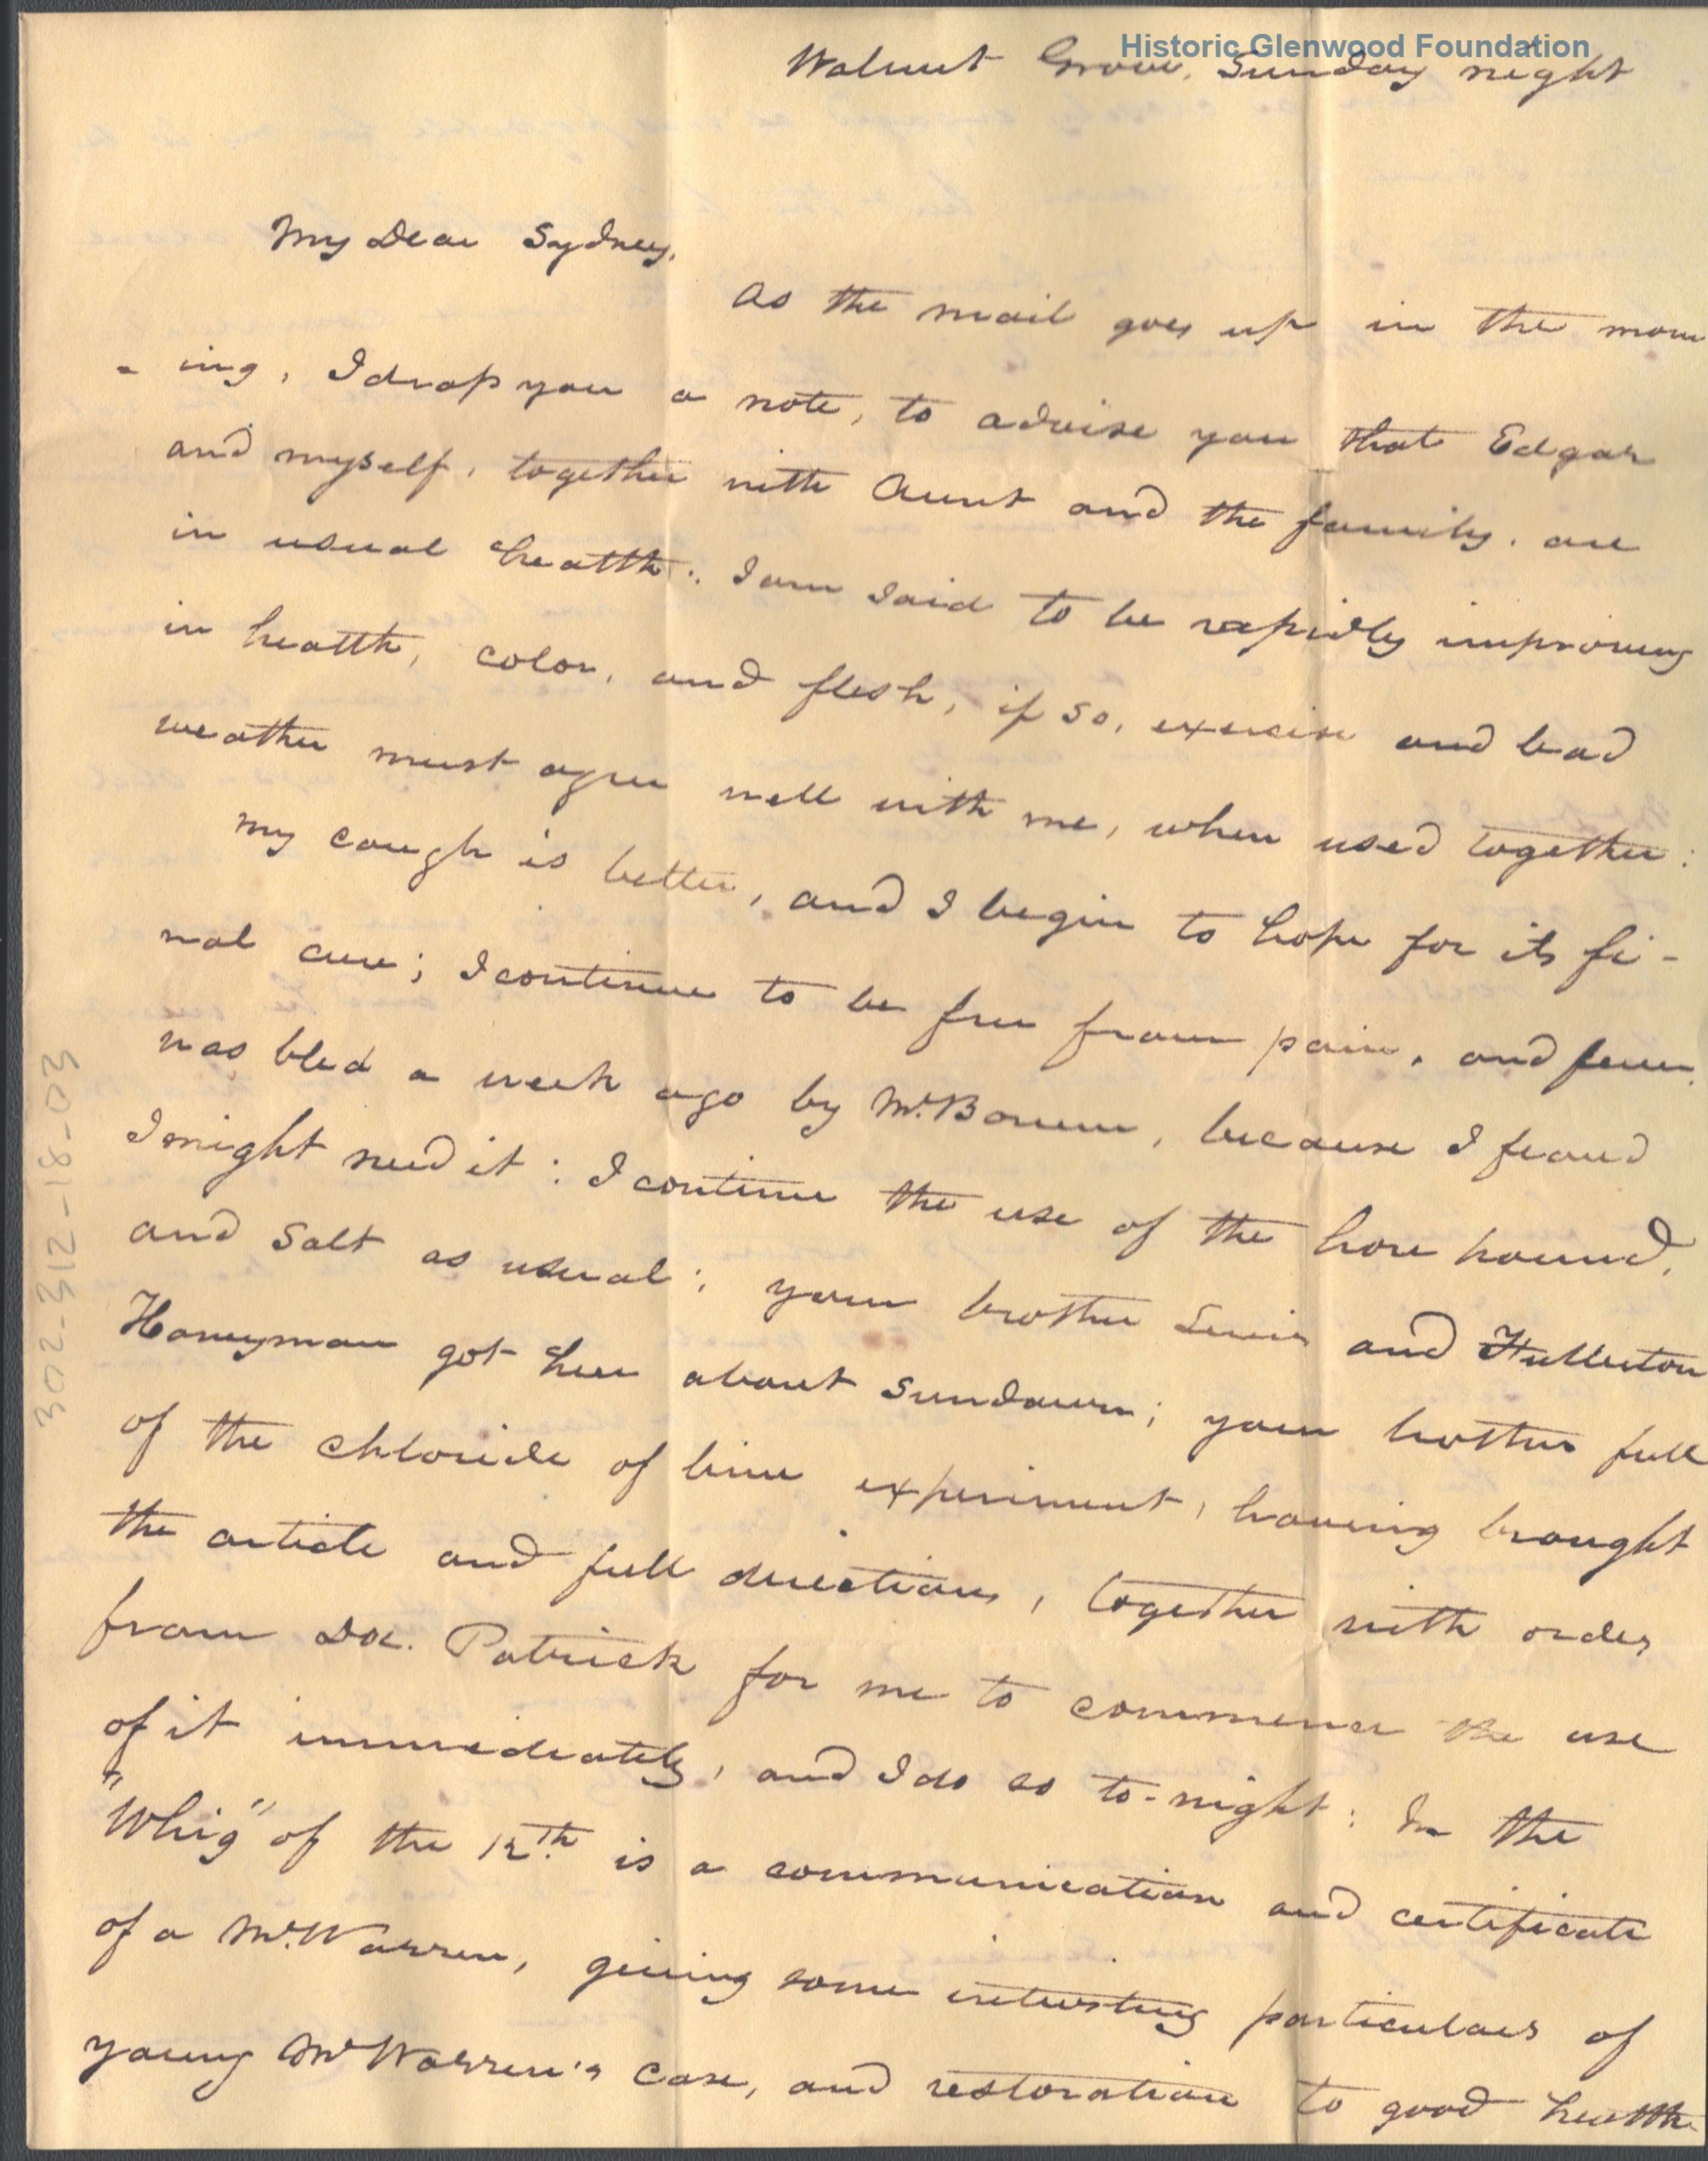 Historic Glenwood Foundation
Walnut Grove, Sunday night
My Dear Sydney,
As the mail goes up in the morn
- ing, I drop you a note, to advise you that Edgar
and myself, together with Aunt and the family, are
in usual health: I am said to be rapidly improving
in health, color, and flesh, if so, exercise and bad
weather must agree well with me, when used together:
My cough is better, and I begin to hope for its fi-
nal cure; I continue to be free from pain, and fever.
was bled a week ago by Mr. Bowen, because I feared
I might need it: I continue the use of the hore hound,
and salt as usual: your brother Lewis and Fullerton
Honeyman got here about sundown; your brother full
of the chloride of lime experiment, having brought
the article and full directions, together with orders
from Doc. Patrick for me to commence the use
of it immediately, and I do so to-night: In the
"Whig" of the 12th is a communication and certificate
of a Mr. Warren, giving some interesting particulars of
young Mr Warren's case, and restoration to good health
302-312-18-03